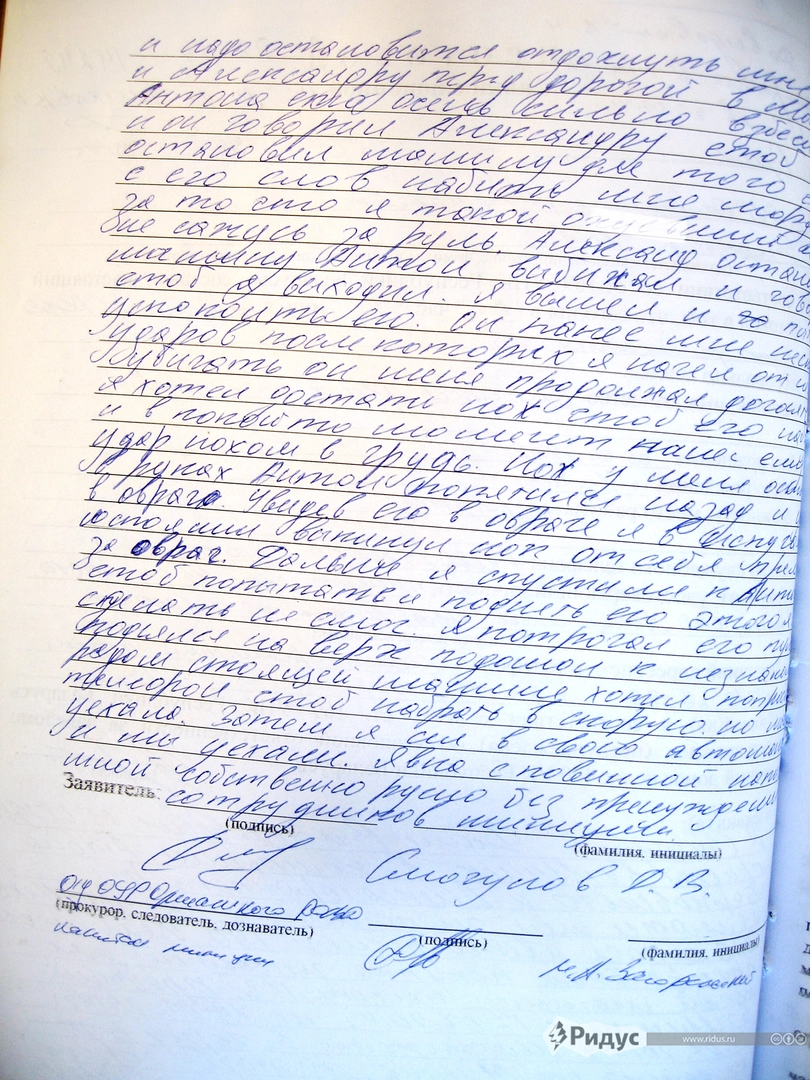 и надо остановится отдохнуть мне
и Александру перед дорогой в М
Антона ето очень сильно взбес
и он говорил Александру стоб
остановил машину для того
с его слов набить мне мор
за то сто я такой
не сажусь за руль. Александ остан
машину Антон выбижал и гов
стоб я выходил. Я вышел и по
успокоить его. Он нанес мне нес
ударов после которых я начел от н
убигать он меня продолжал догаля
я хотел достать нох стоб его
и в какой то момент нанес ему
удар нохом в грудь. Нох у меня оста
в руках Антон попятился назад и
в овраг. Увидев его в овраге я в испуга
состоянии выкинул нох от себя
за овраг. Дальше я спустился к Анто
стоб попытатся поднять его этого я
сделать не смог. Я потрогал его пул
поднялся на верх подошол к незнако
рядом стоящей машине хотел попрос
телефон стоб набрать в скорую. но ма
уехала. Затем я сел в свою автомаш
и мы уехали. Явка с повинной напи
мной собственно ручно без принуждени
Заявитель: сотрудников милиции.
(подпись) (фамилия, инициалы)
Смогунов Д. В.
(прокурор, следователь, дознаватель) (подпись) (фамилия, инициалы)
капитан милиции
Ридус www.ridus.ru